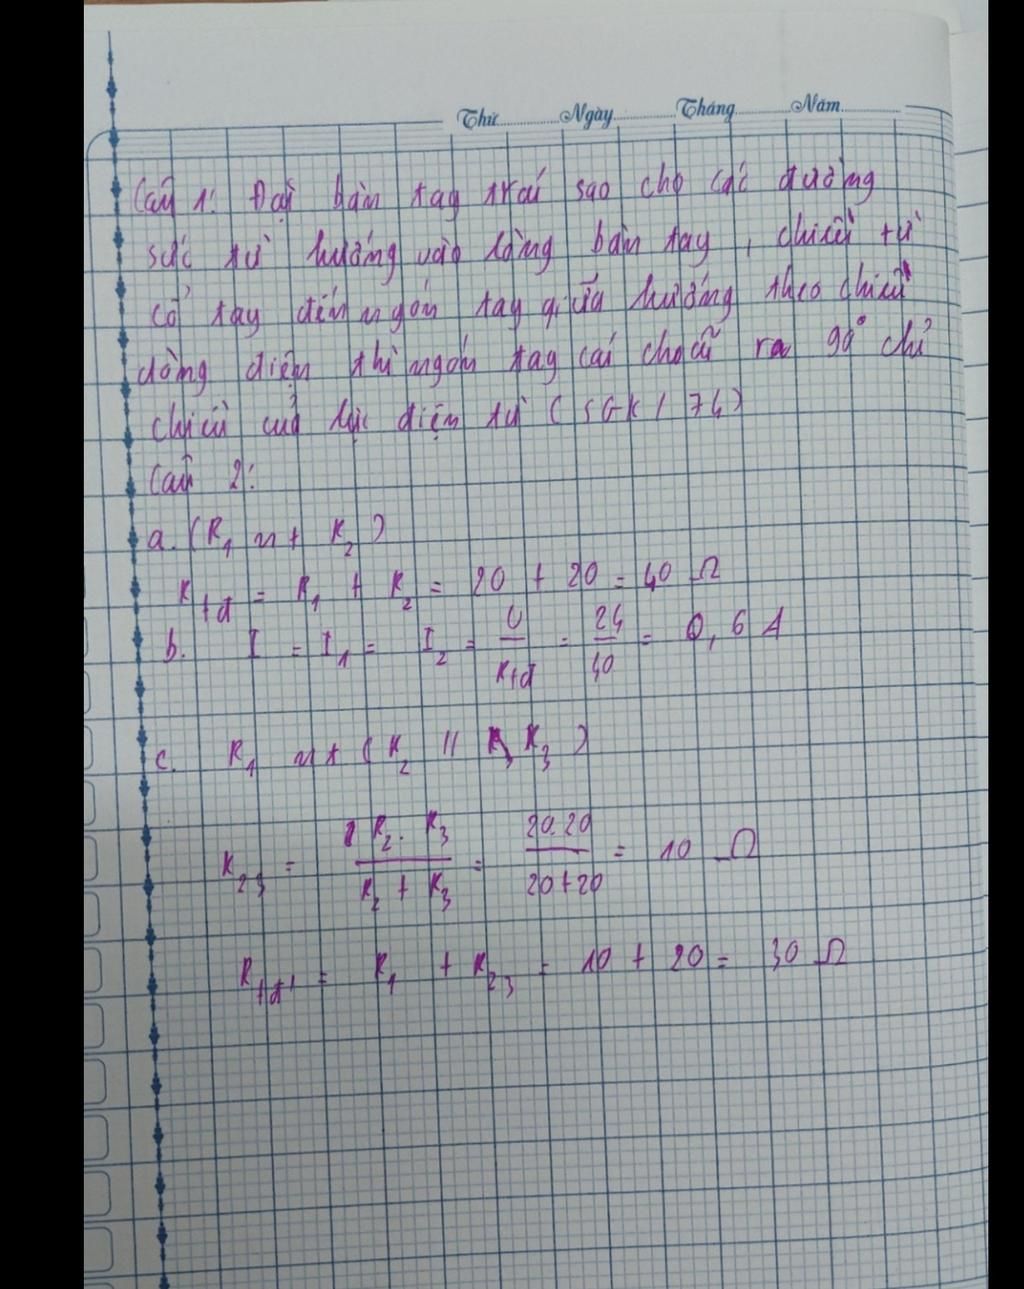 Thứ Ngày Tháng Năm
Câu 1: Đặt bàn tay trái sao cho các đường
sức từ hướng vào lòng bàn tay, chiều từ
cổ tay đến ngón tay giữa hướng theo chiều
dòng điện thì ngón tay cái choãi ra 90° chỉ
chiều của lực điện từ (SGK / 74)
Câu 2:
a. (R₁ nt R₂)
Rtđ = R₁ + R₂ = 20 + 20 = 40 Ω
b. I = I₁ = I₂ = U/Rtđ = 24/40 = 0,6 A
c. R₁ nt (R₂ // R₃)
R₂₃ = R₂.R₃/R₂ + R₃ = 20.20/20+20 = 10 Ω
Rtđ' = R₁ + R₂₃ = 10 + 20 = 30 Ω